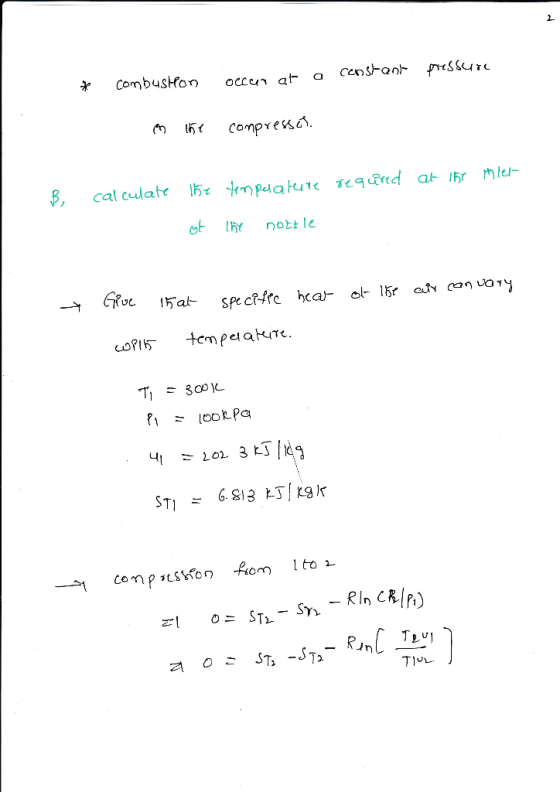 2
* combustion occur at a constant pressure
in the compressor.
B, calculate the temperature required at the inlet
of the nozzle
→ Give that specific heat of the air can vary
with temperature.
T1 = 300K
P1 = 100kPa
u1 = 202 3 kJ/kg
ST1 = 6.813 kJ/kgK
→ compression from 1 to 2
=) 0 = ST2 - Sr2 - Rln (P2/P1)
=) 0 = ST2 - ST2 - Rln [ T2V1 / T1V2 ]